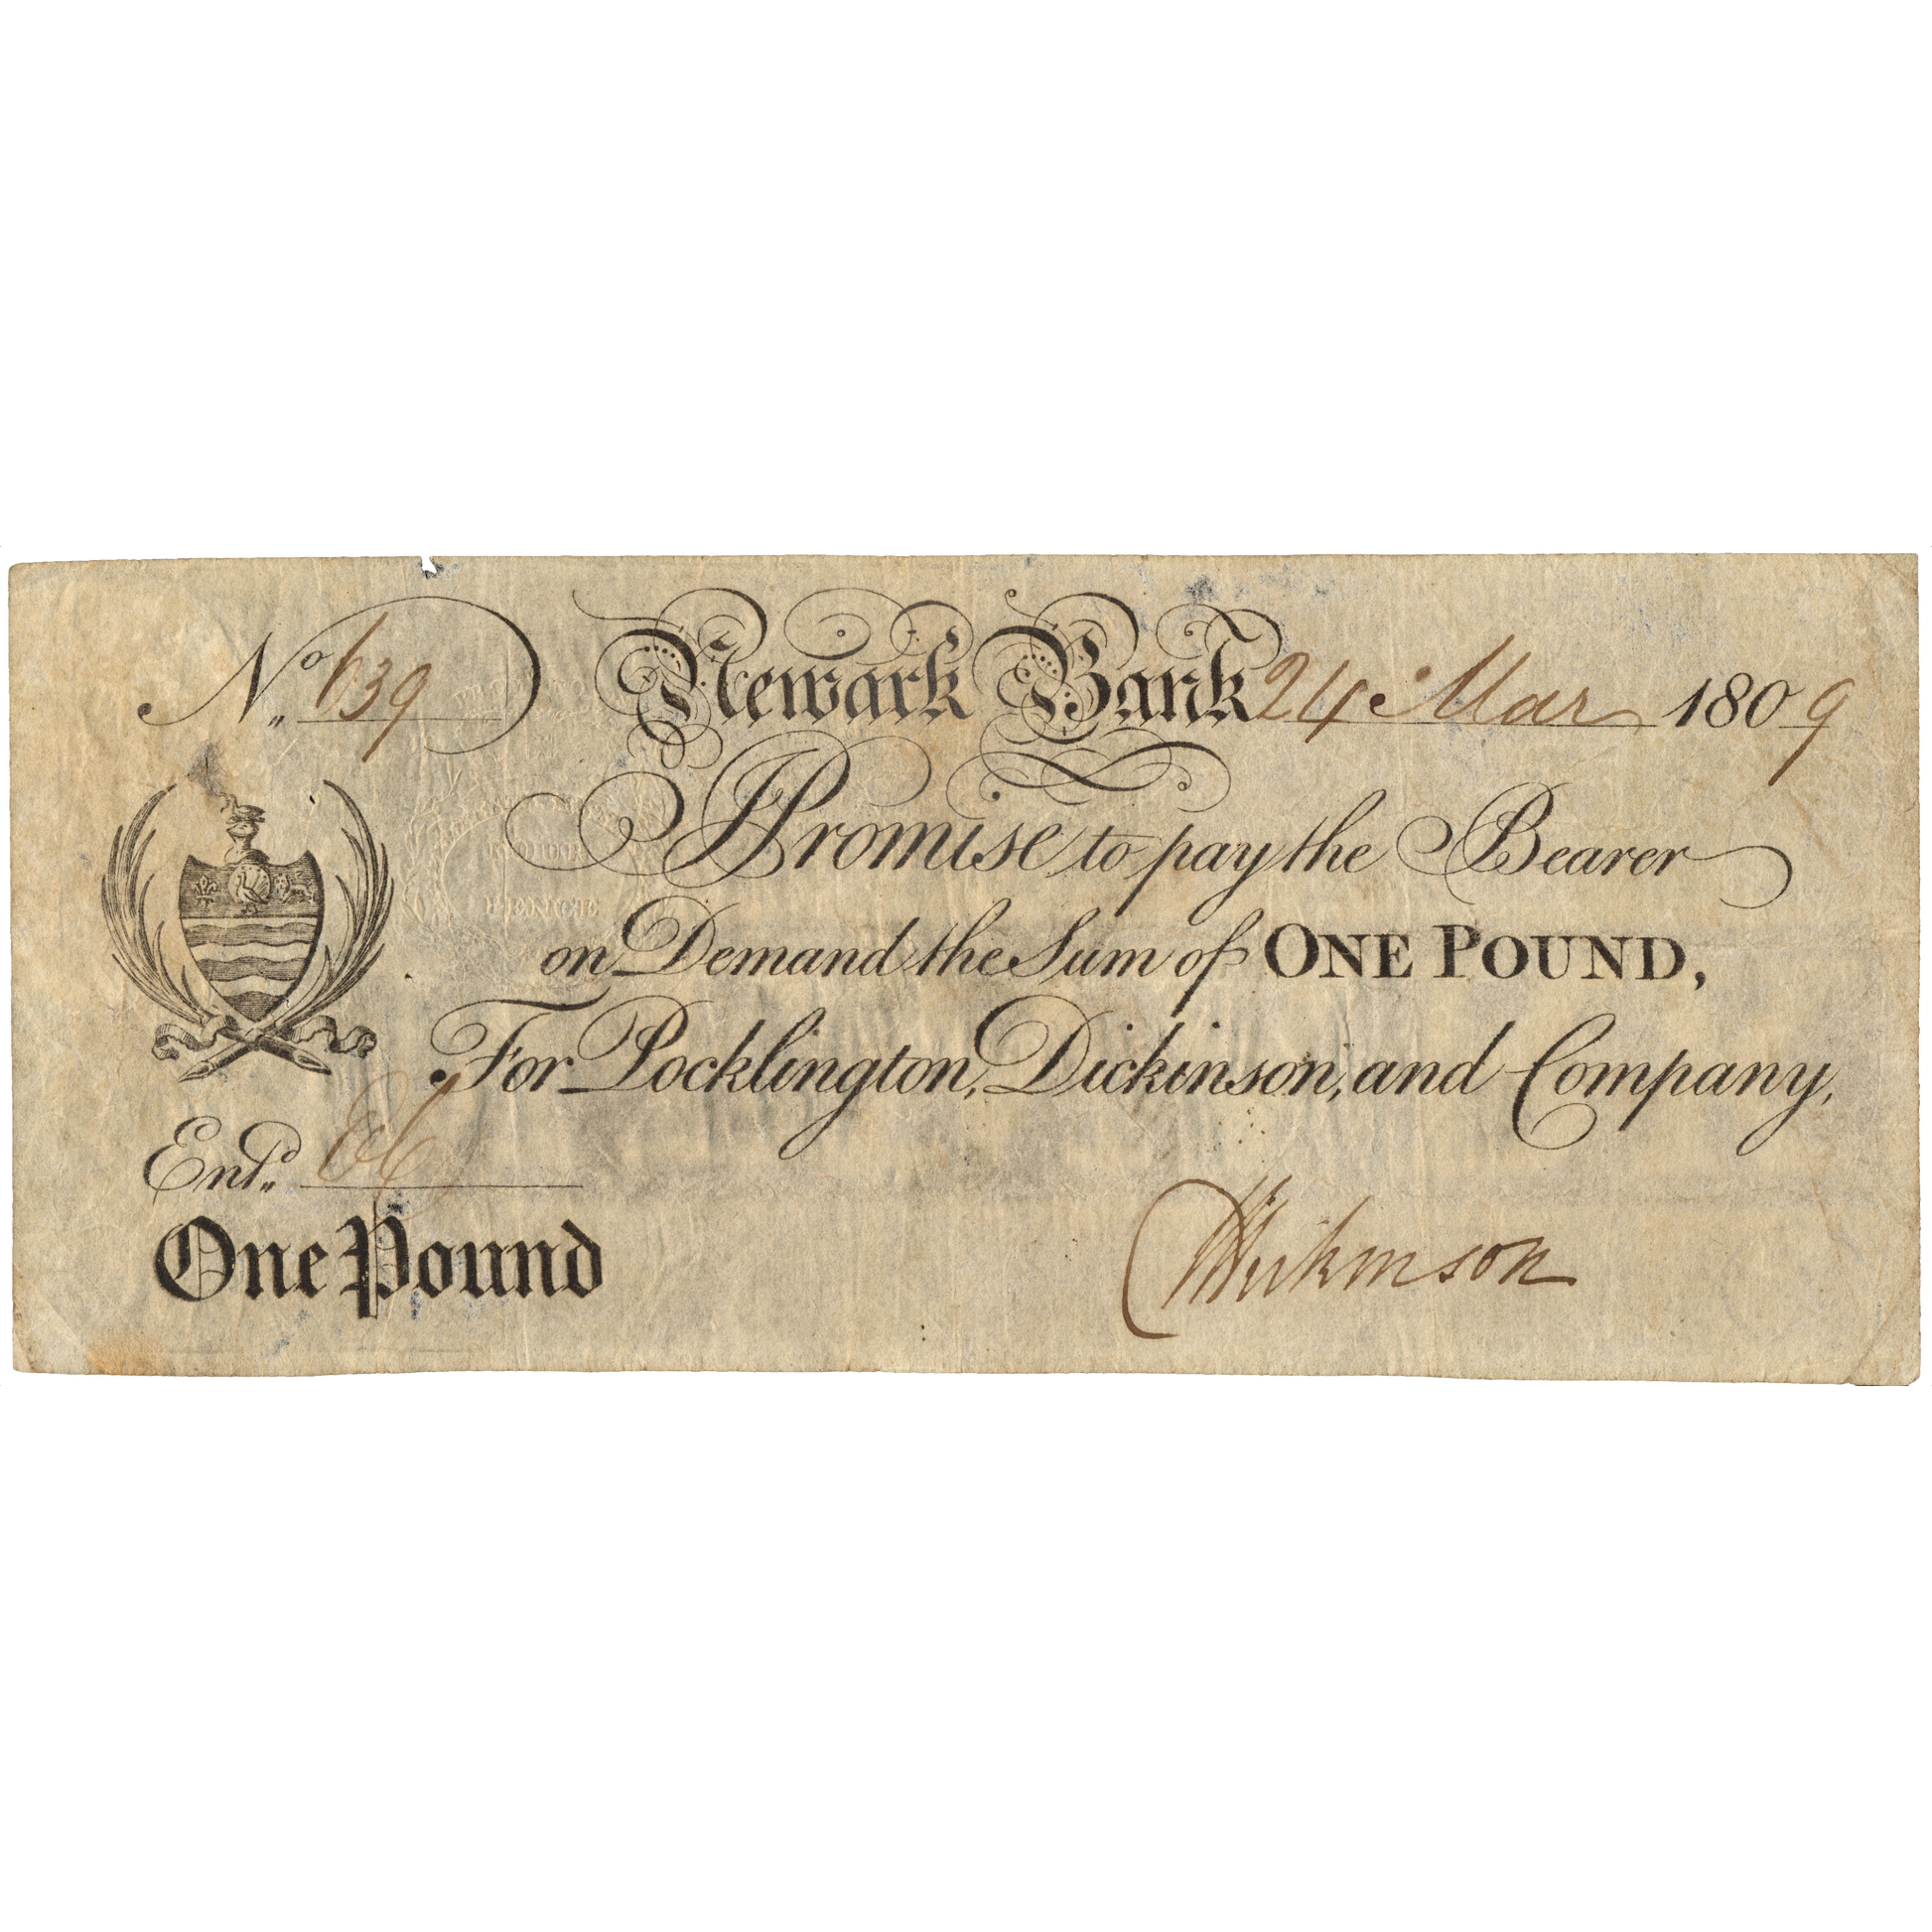 No. 639 Newark Bank 24 Mar 1809
I Promise to pay the Bearer
on Demand the Sum of ONE POUND,
For Pocklington, Dickinson, and Company,
Entd.
One Pound
PENCE